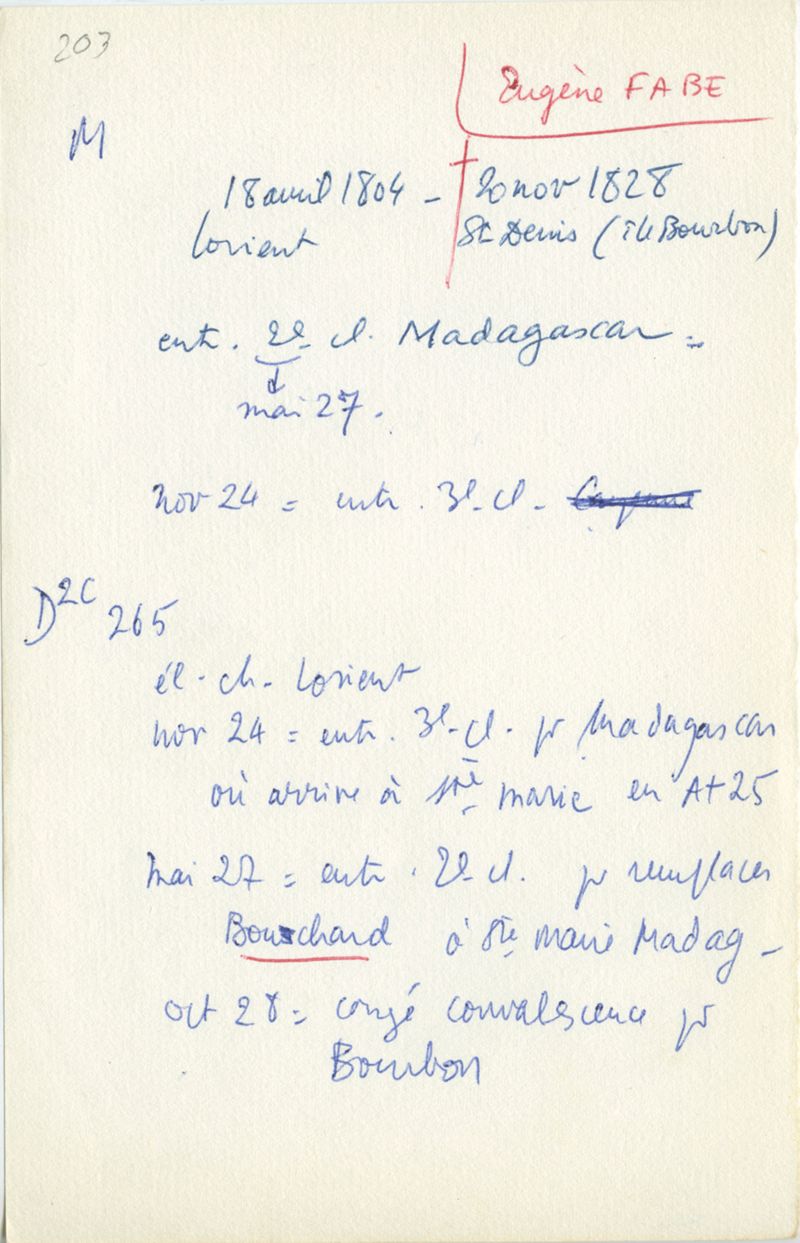 203
Eugène FABE
M
18 avril 1804 - † 20 nov 1828
Lorient St Denis (île Bourbon)
entr. 2e cl. Madagascar =
mai 27.
nov 24 = entr. 3e cl -
D2C 265
él. ch. Lorient
nov 24 = entr. 3e cl. pr Madagascar
où arrive à Ste marie en At 25
mai 27 = entr. 2e cl. pr remplacer
Bouchard à Ste marie Madag -
oct 28 = congé convalescence pr
Bourbon